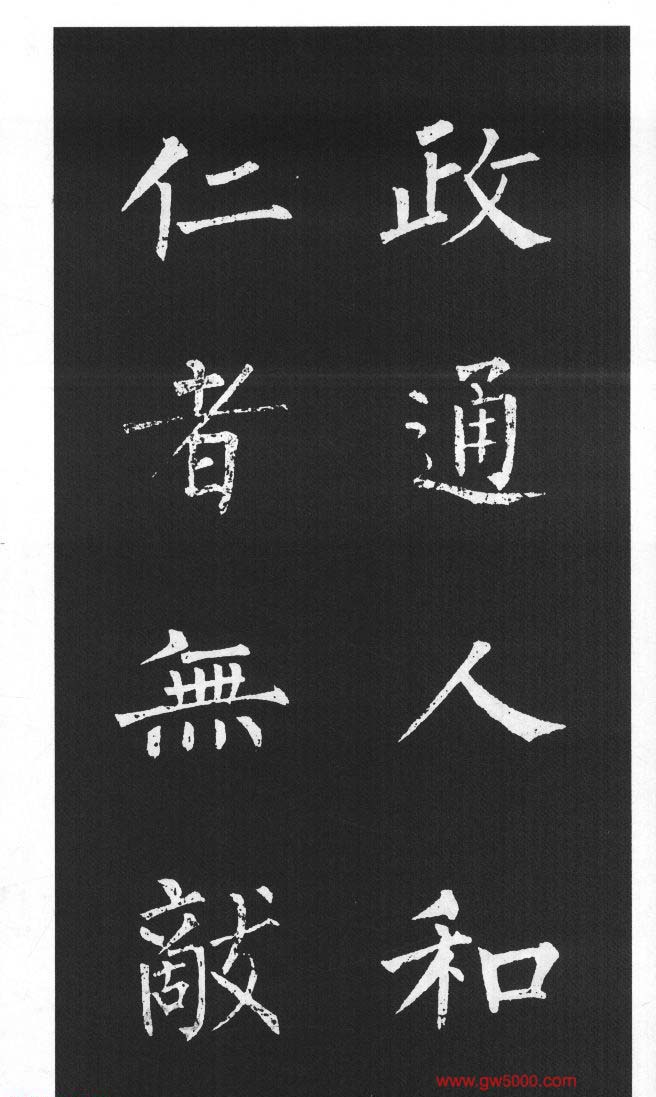 政通人和
仁者無敵
www.gw5000.com